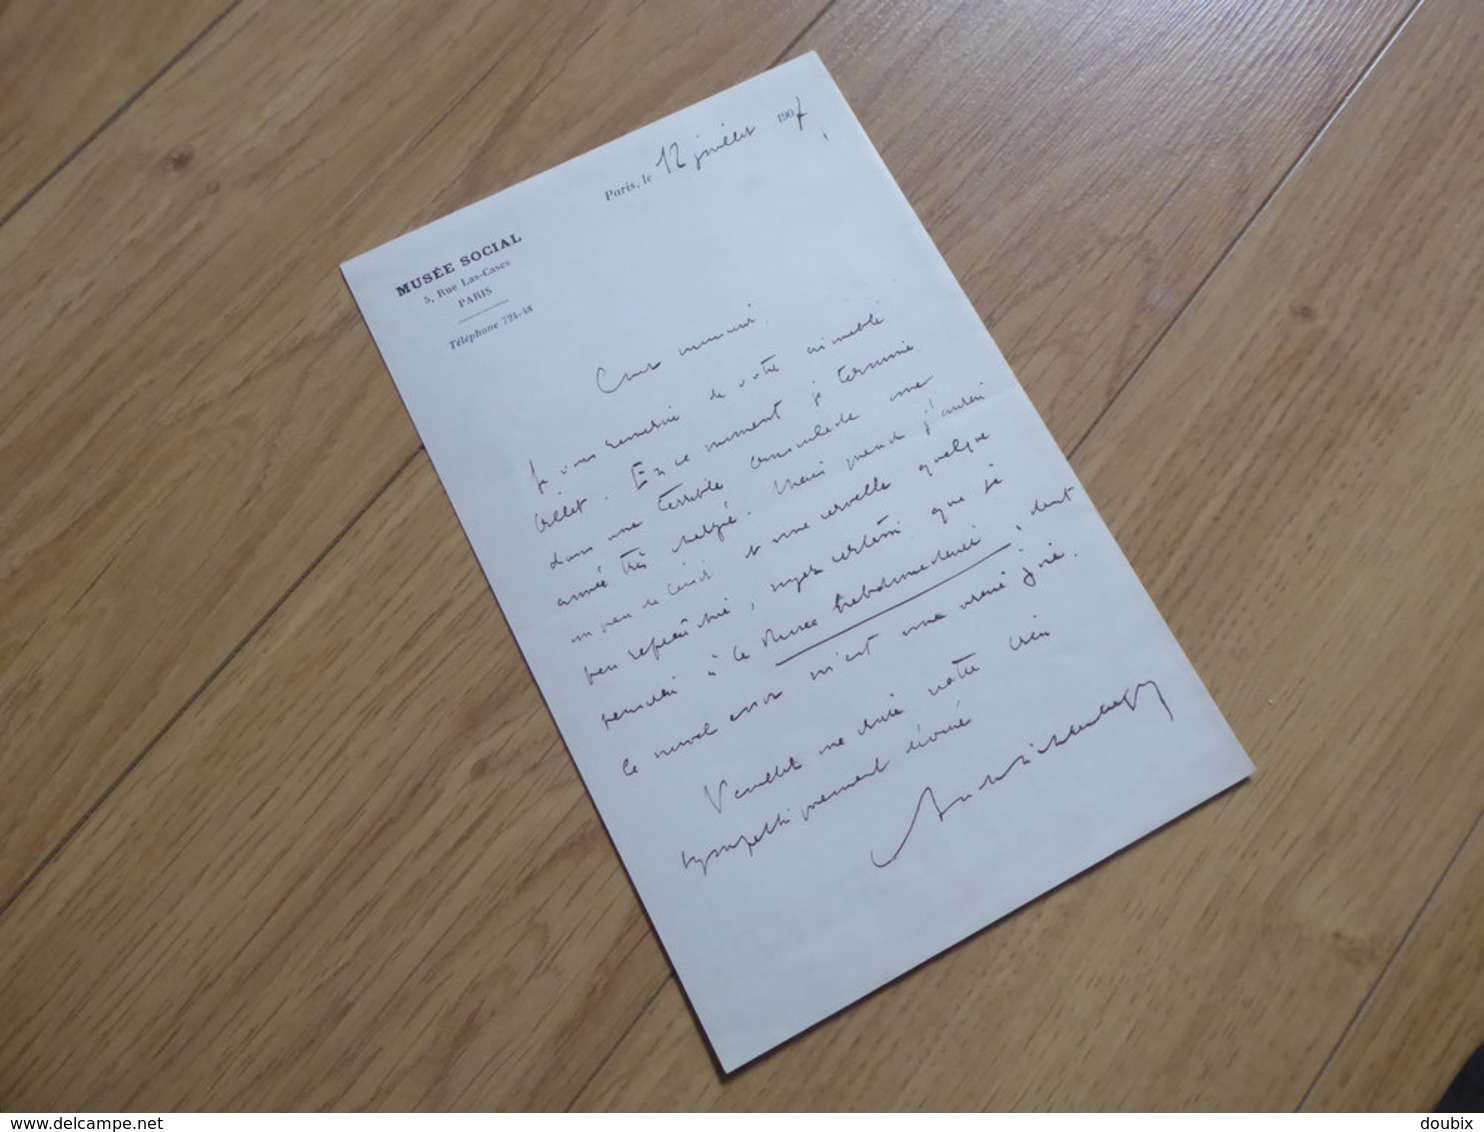 Paris, le 12 juillet 1907
MUSÉE SOCIAL
5, Rue Las-Cases
PARIS
Téléphone 724-48
Cher monsieur,
Je vous remercie de votre aimable
billet. En ce moment je termine
dans une terrible une
année très . Mais quand j'aurai
un peu de loisir et une cervelle quelque
peu rafraîchie, soyez certain que je
penserai à la Revue hebdomadaire, dont
le nouvel essor m'est une vraie joie.
Veuillez me croire votre bien
sympathiquement dévoué
www.delcampe.net
doubix